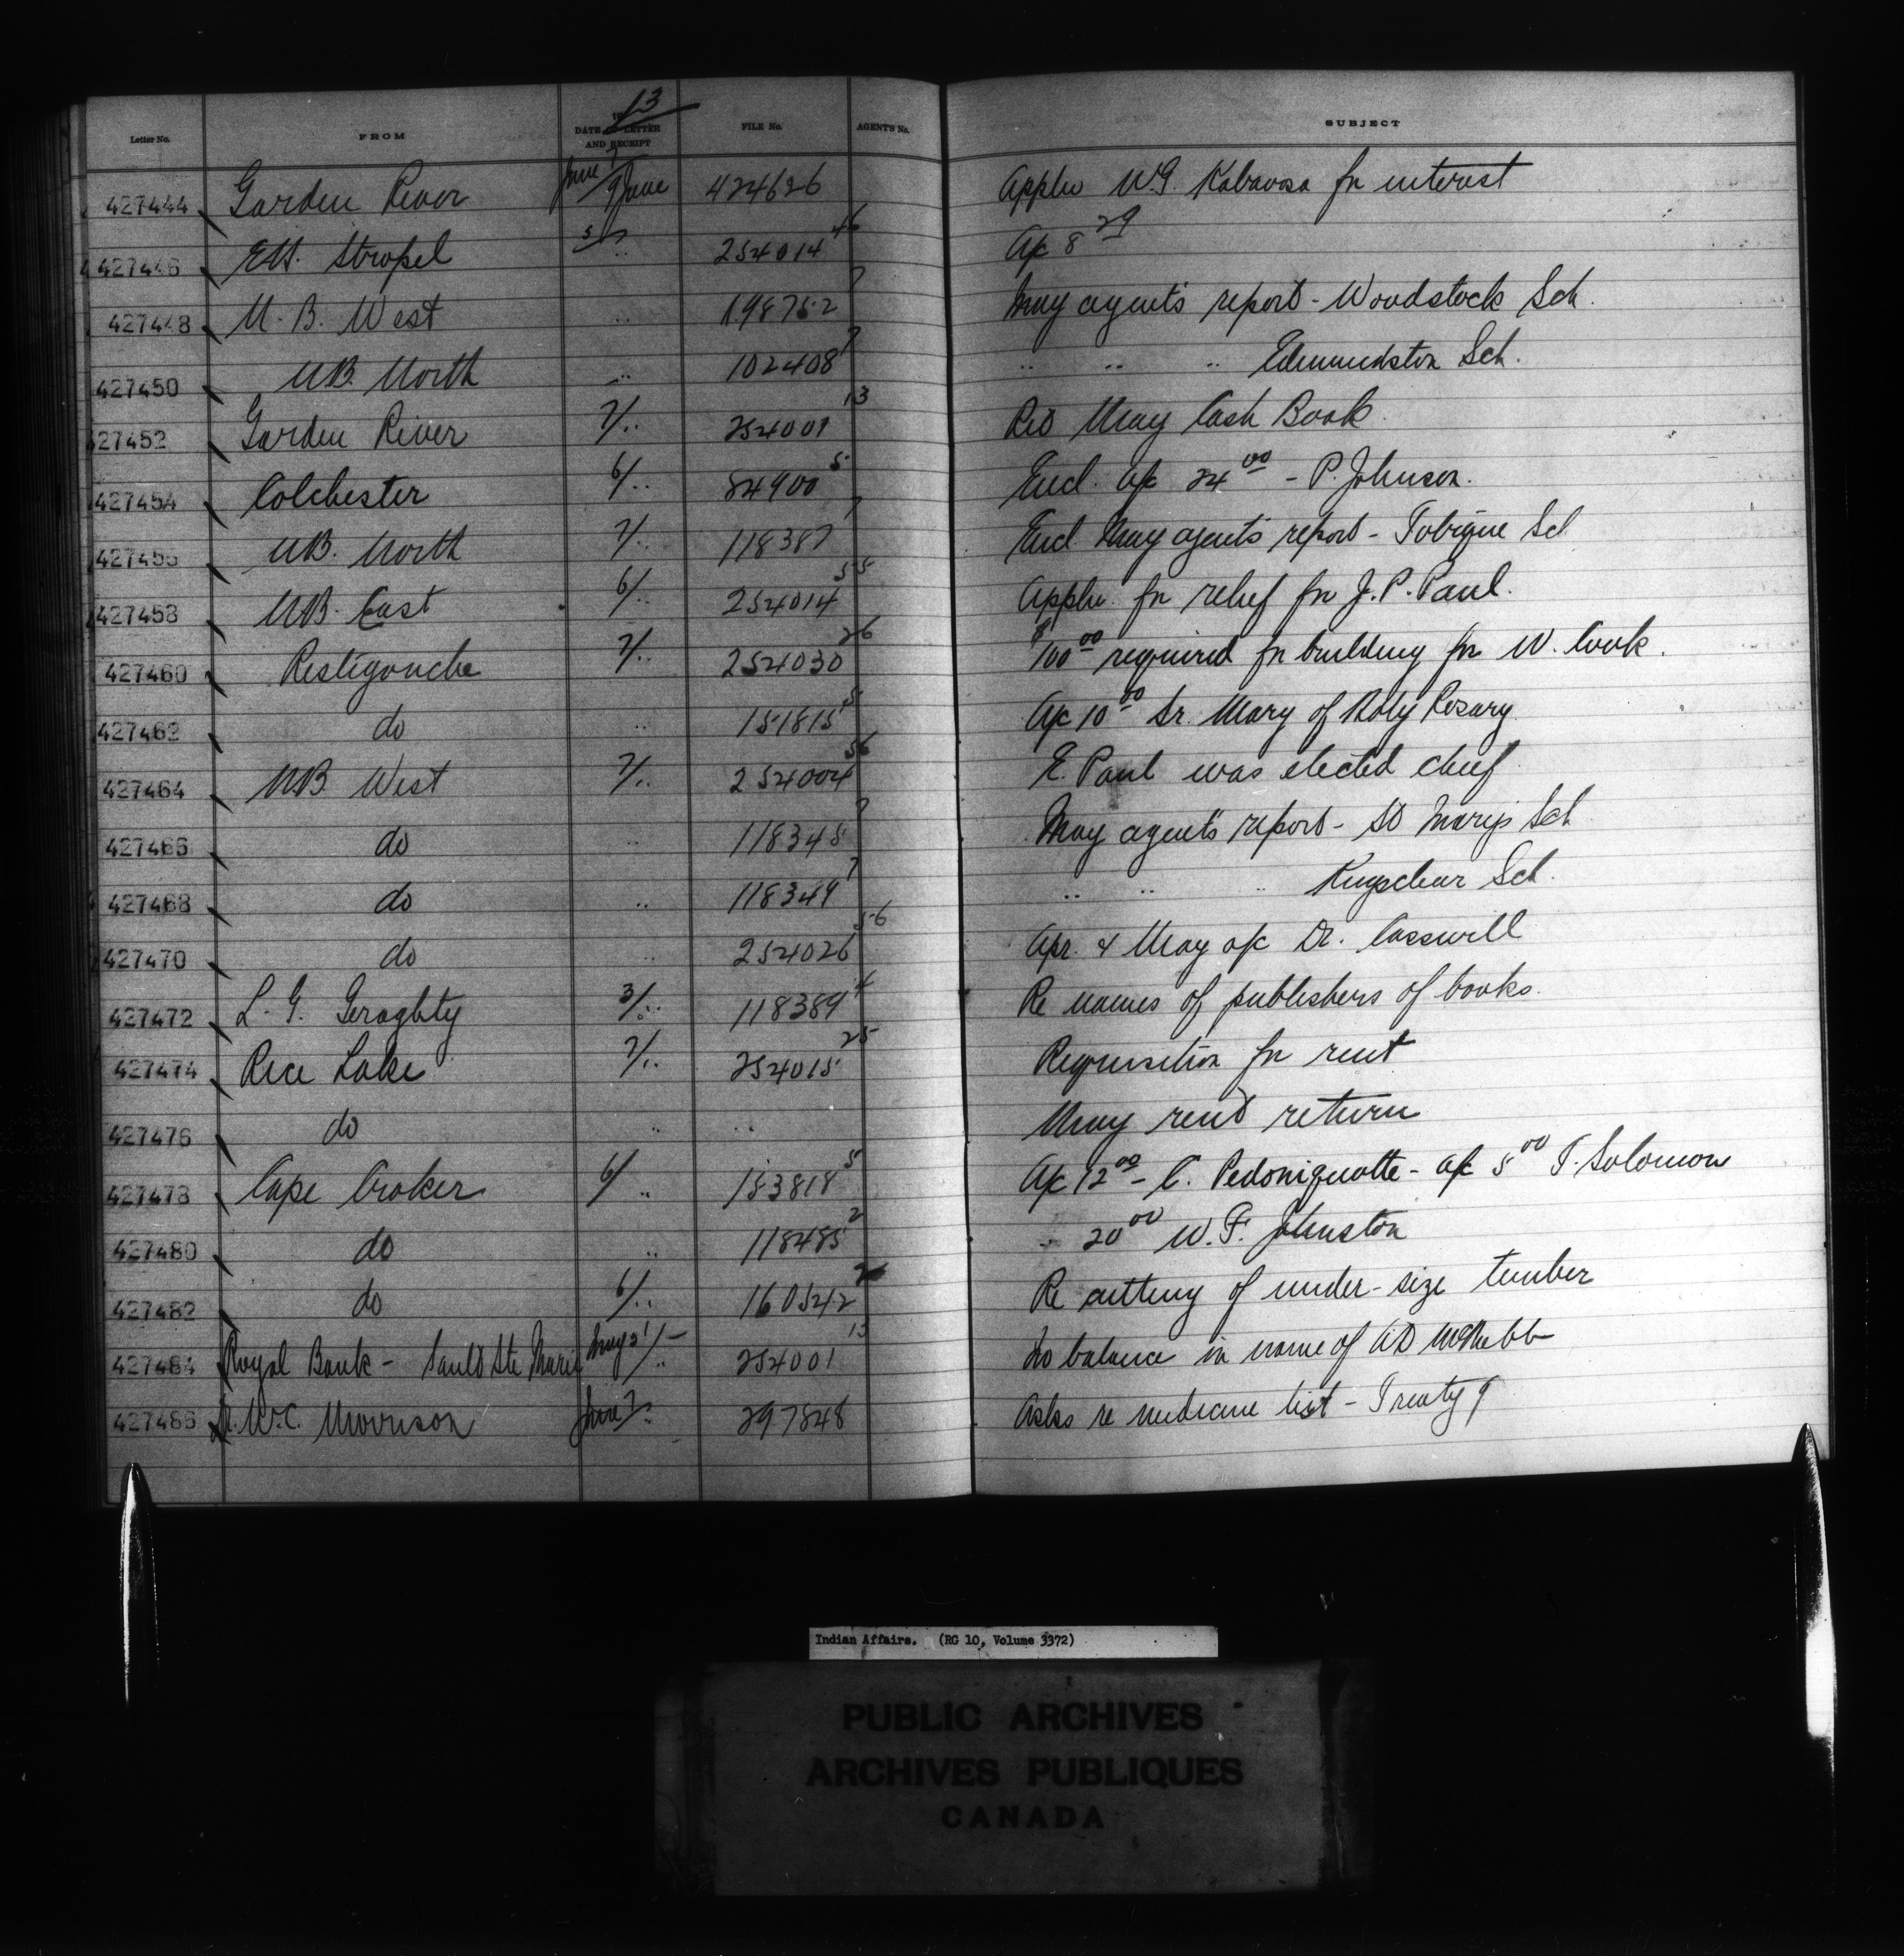 Letter No. FROM 1913 DATE OF LETTER AND RECEIPT FILE No. AGENT'S No. SUBJECT
427444 Garden River June 7/9 June 424626 Applu W.G. Kabaosa for interest
427446 E.H. Stropel 5/7 .. 254014 46 A/c 8 29
427448 N.B. West .. 198752 7 May agent's report - Woodstock Sch.
427450 N.B. North .. 102408 7 .. .. .. Edmundston Sch.
427452 Garden River 7/.. 254001 13 Red May Cash Book
427454 Colchester 6/.. 84900 5 Encl. a/c 24 00 - P. Johnson.
427456 N.B. North 7/.. 118387 7 Encl May agent's report - Tobique Sch
427458 N.B. East 6/.. 254014 55 Applu. for relief for J.P. Paul.
427460 Restigouche 7/.. 254030 26 $100 00 required for building for W. Cook.
427462 do .. 151815 5 A/c 10 00 Sr. Mary of Holy Rosary
427464 N.B. West 7/.. 254004 56 E. Paul was elected chief
427466 do .. 118348 7 May agent's report - St Mary's Sch
427468 do .. 118349 7 .. .. .. Kingsclear Sch.
427470 do .. 254026 56 Apr. & May a/c Dr. Casswill
427472 L.G. Geraghty 3/.. 118389 4 Re names of publishers of books.
427474 Rice Lake 7/.. 254015 25 Requisition for rent
427476 do .. .. May rent return
427478 Cape Croker 6/ .. 183818 5 A/c 12 00 - C. Pedoniquotte - a/c 5 00 T. Solomon
427480 do .. 118485 2 .. 20 00 W.F. Johnston
427482 do 6/.. 160542 Re cutting of under-size timber
427484 Royal Bank - Sault Ste Marie May 31/.. 254001 13 No balance in name of A D McNabb
427486 Dr. W.C. Morrison June 7/.. 297848 Asks re medicine list - Treaty 9
Indian Affairs. (RG 10, Volume 3372)
PUBLIC ARCHIVES
ARCHIVES PUBLIQUES
CANADA